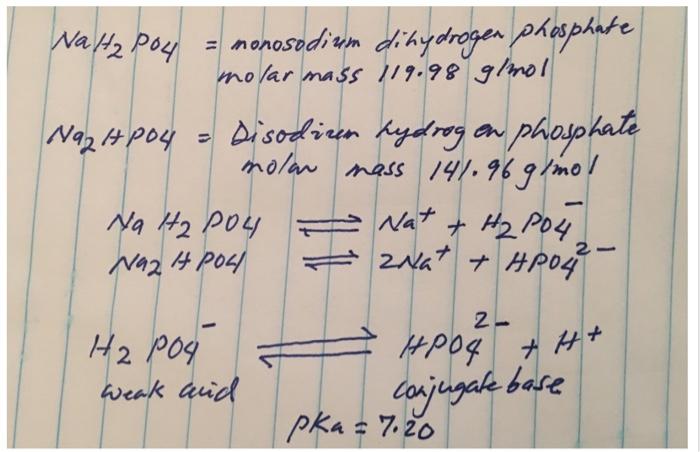 NaH2PO4 = monosodium dihydrogen phosphate
molar mass 119.98 g/mol
Na2HPO4 = Disodium hydrogen phosphate
molar mass 141.96 g/mol
NaH2PO4 ⇌ Na⁺ + H2PO4⁻
Na2HPO4 ⇌ 2Na⁺ + HPO4²⁻
H2PO4⁻ ⇌ HPO4²⁻ + H⁺
weak acid conjugate base
pKa = 7.20